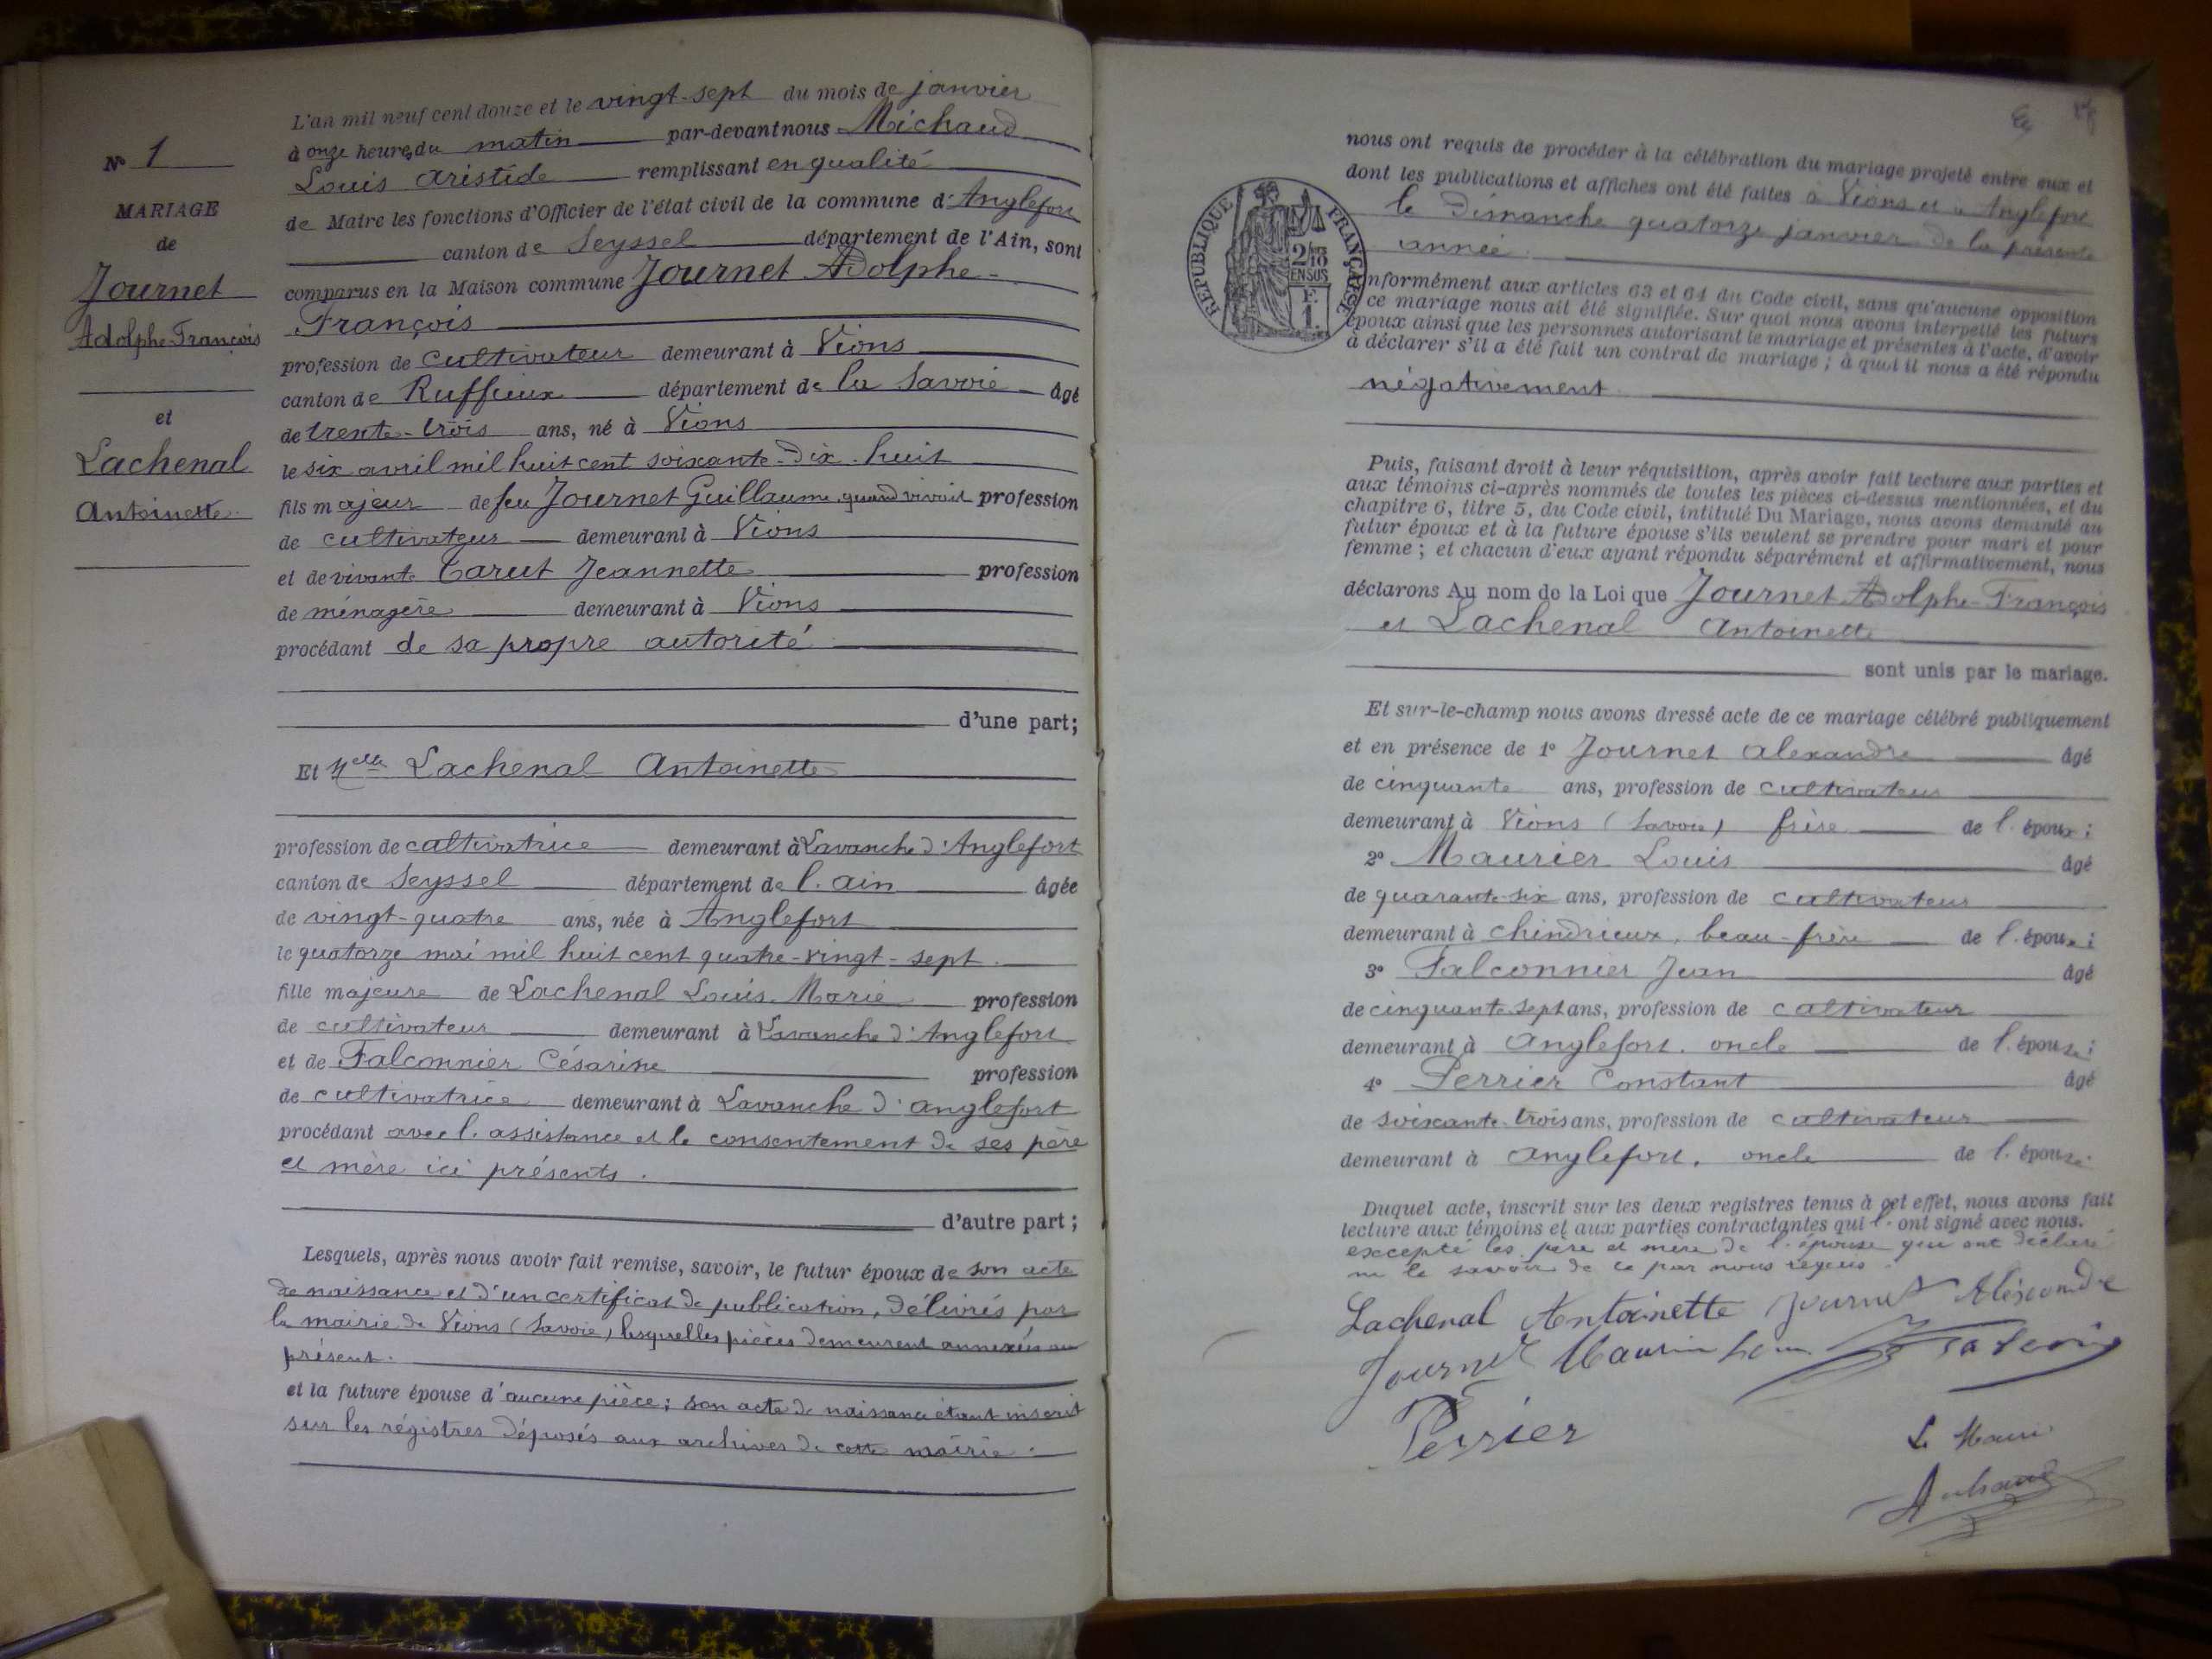 N° 1
MARIAGE
de
Journet
Adolphe-François
et
Lachenal
Antoinette
L'an mil neuf cent douze et le vingt-sept du mois de janvier
à onze heures du matin par-devant nous Michaud
Louis Aristide remplissant en qualité
de Maire les fonctions d'Officier de l'état civil de la commune d'Anglefort
canton de Seyssel département de l'Ain, sont
comparus en la Maison commune Journet Adolphe-
François
profession de cultivateur demeurant à Vions
canton de Ruffieux département de la Savoie âgé
de trente-trois ans, né à Vions
le six avril mil huit cent soixante-dix-huit
fils majeur de feu Journet Guillaume, quand vivait profession
de cultivateur demeurant à Vions
et de vivante Carut Jeannette profession
de ménagère demeurant à Vions
procédant de sa propre autorité
d'une part;
Et Melle Lachenal Antoinette
profession de cultivatrice demeurant à Lavanche d'Anglefort
canton de Seyssel département de l'ain âgée
de vingt-quatre ans, née à Anglefort
le quatorze mai mil huit cent quatre-vingt-sept.
fille majeure de Lachenal Louis-Marie profession
de cultivateur demeurant à Lavanche d'Anglefort
et de Falconnier Césarine profession
de cultivatrice demeurant à Lavanche d'anglefort
procédant avec l'assistance et le consentement de ses père
et mère ici présents.
d'autre part;
Lesquels, après nous avoir fait remise, savoir, le futur époux de son acte
de naissance et d'un certificat de publication, délivrés par
la mairie de Vions (Savoie), lesquelles pièces demeurent annexées au
présent.
et la future épouse d'aucune pièce; son acte de naissance étant inscrit
sur les régistres déposés aux archives de cette mairie.
RÉPUBLIQUE FRANÇAISE
2/10
EN SUS
1 F.
nous ont requis de procéder à la célébration du mariage projeté entre eux et
dont les publications et affiches ont été faites à Vions et à Anglefort
le Dimanche quatorze janvier de la présente
année.
conformément aux articles 63 et 64 du Code civil, sans qu'aucune opposition
ce mariage nous ait été signifiée. Sur quoi nous avons interpellé les futurs
époux ainsi que les personnes autorisant le mariage et présentes à l'acte, d'avoir
à déclarer s'il a été fait un contrat de mariage; à quoi il nous a été répondu
négativement
Puis, faisant droit à leur réquisition, après avoir fait lecture aux parties et
aux témoins ci-après nommés de toutes les pièces ci-dessus mentionnées, et du
chapitre 6, titre 5, du Code civil, intitulé Du Mariage, nous avons demandé au
futur époux et à la future épouse s'ils veulent se prendre pour mari et pour
femme; et chacun d'eux ayant répondu séparément et affirmativement, nous
déclarons Au nom de la Loi que Journet Adolphe-François
et Lachenal Antoinette
sont unis par le mariage.
Et sur-le-champ nous avons dressé acte de ce mariage célébré publiquement
et en présence de 1° Journet Alexandre âgé
de cinquante ans, profession de cultivateur
demeurant à Vions (Savoie) frère de l'époux;
2° Maurier Louis âgé
de quarante-six ans, profession de cultivateur
demeurant à Chindrieux, beau-frère de l'époux;
3° Falconnier Jean âgé
de cinquante-sept ans, profession de cultivateur
demeurant à Anglefort, oncle de l'épouse;
4° Perrier Constant âgé
de soixante-trois ans, profession de cultivateur
demeurant à Anglefort, oncle de l'épouse
Duquel acte, inscrit sur les deux registres tenus à cet effet, nous avons fait
lecture aux témoins et aux parties contractantes qui l'ont signé avec nous.
excepté les père et mère de l'épouse qui ont déclaré
ne le savoir de ce par nous requis.
Lachenal Antoinette Journet Alexandre
Journet
Perrier
Le Maire